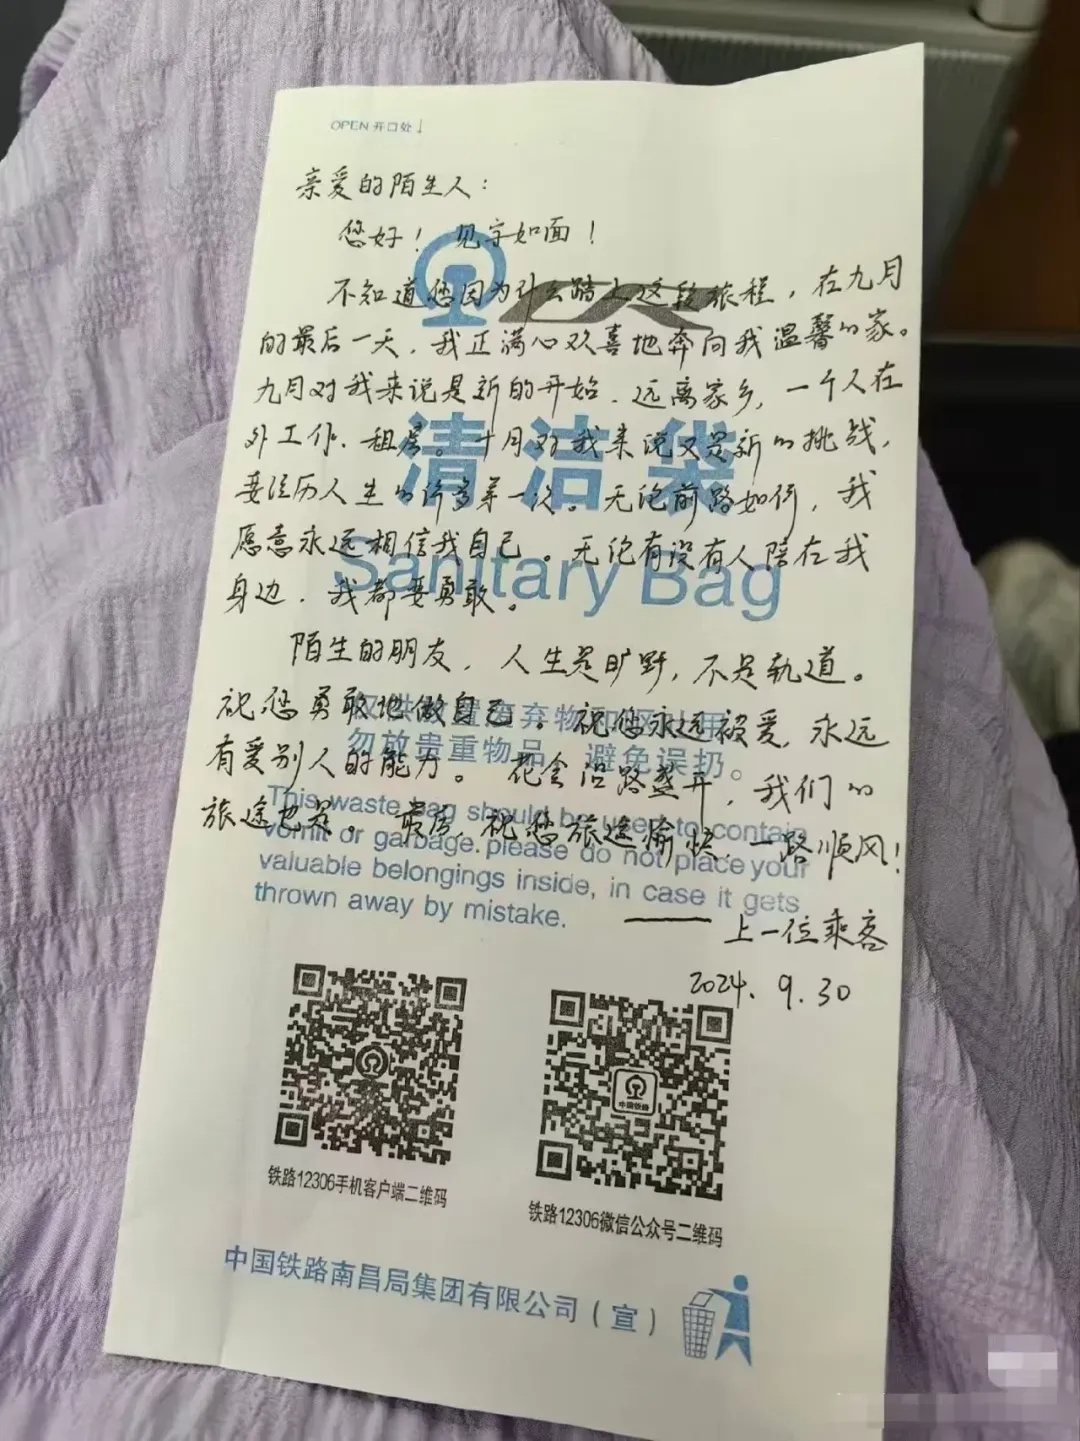 OPEN 开口处↓
亲爱的陌生人：
您好！见字如面！
不知道您因为什么踏上这段旅程，在九月
的最后一天，我正满心欢喜地奔向我温馨的家。
九月对我来说是新的开始，远离家乡，一个人在
外工作、租房。十月对我来说又是新的挑战，
要经历人生的许多第一次。无论前路如何，我
愿意永远相信我自己。无论有没有人陪在我
身边，我都要勇敢。
陌生的朋友，人生是旷野，不是轨道。
祝您勇敢地做自己。祝您永远被爱，永远
有爱别人的能力。花会沿路盛开，我们的
旅途也是。最后，祝您旅途愉快，一路顺风！
——上一位乘客
2024.9.30
清洁袋
Sanitary Bag
置废弃物
勿放贵重物品，避免误扔。
This waste bag should be used to contain
vomit or garbage.please do not place your
valuable belongings inside, in case it gets
thrown away by mistake.
中国铁路
铁路12306手机客户端二维码
铁路12306微信公众号二维码
中国铁路南昌局集团有限公司（宣）